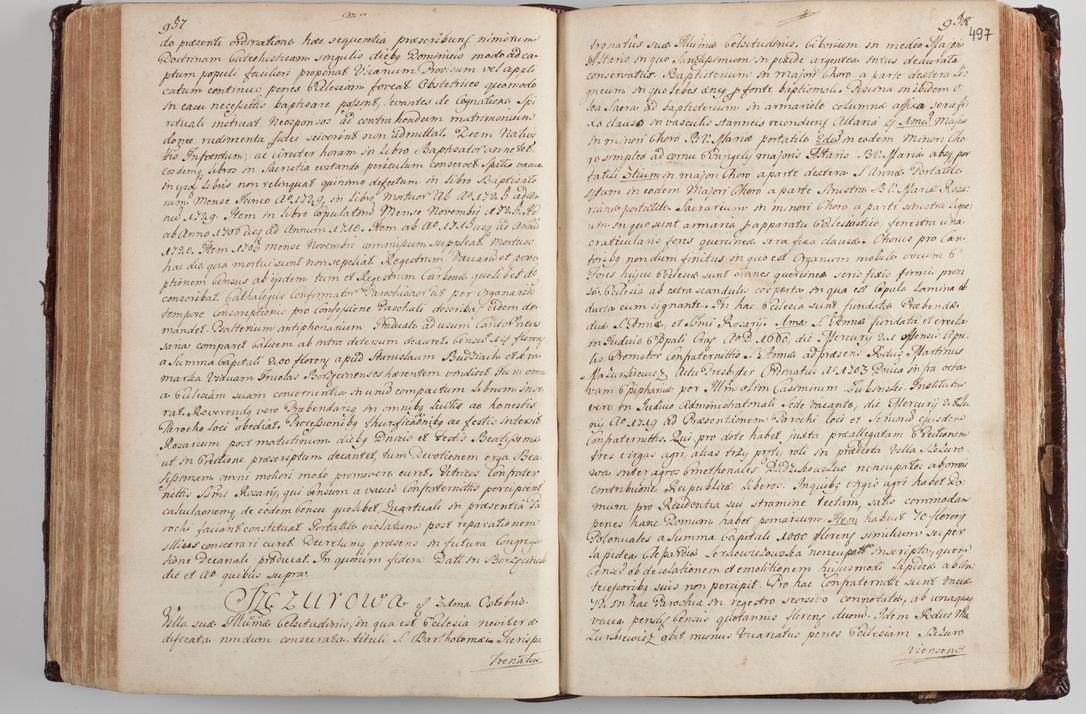 957
do præsenti ordinatione hæc sequentia præscribunt, nimirum
Doctrinam Catechisticam singulis diebus Dominicis modo ad ca-
ptum populi faciliori proponat Vicarium Provisum vel appli-
catum continuo penes Ecclesiam foveat Obstetrices quomodo
in casu necessitatis baptisare possint, levantes de Cognatione Spi-
rituali instruat. Neosponsos ad contrahendum matrimonium
donec rudimenta fidei sciverint non admittat. Diem Nativi
tis Infantum, ac circiter horam in Libro Baptisator annotet
eosdemq Libros in Sacristia evitando periculum conservet Spatia vacua
in iisdem Libris non relinquat quinimo defectum in libro Baptisato
rum Mense Junio Aº 1729, in Libro Mortuor Ab Aº 1725 ad An
num 1729. Item in Libro Copulatorum Mense Novembri 1725. It
ab Anno 1708 usq ad Annum 1710. Item ab Aº 1715 usq ad Annum
1720. Item 1723 mense Novembri ommissum suppleat. Mortuos
hac die qua mortui sunt non sepeliat. Regestrum Vaccarum et perce
ptionem Census ab iisdem tum et Regestrum Carbonæ
conscribat. Cathalogus Confirmator Parochianor ut per Organarium
tempore Conscriptionis pro Confessione Paschali describat eidem de-
mandet. Psalterium antiphonarium Graduale ad usum Cantor
comparet Calicem ab intra detersum deauret. Census 14 floren
a Summa Capitali 200 floreny apud Stanislaum Budziach et
marka Viduam Incolas Borzecinenses hærentem vindicet Jura omnia
a Ecclesiam suam concernentia in unum compactum Librum Inse-
rat. Reverendus vero Præbendarius in omnibus licitis ac honestis
Parocho loci obediat. Processionibus thurificationibus ac festis intersit
Rosarium post matutinum diebus Dnicis et Festis Beatissimæ
ut in Erectione præscriptum decantet, tum Devotionem erga Bea
tissimam omni meliori modo promovere curet. Vitrices Confrater
nittis Ssmi Rosarij, qui Censum a vaccis Confraternittis percipiunt
calculationem de eodem Censu quolibet Quartuali in præsentia Pa
rochi faciant constituat Portatile violatum post reparationem
illius consecrari curet Decretum præsens in futura Congrega-
tione Decanali producat. In quorum fidem Datt in Borzęcin
die et Aº quibus supra.
Szczurowa 3tia Octobris
Villa suæ Illumæ Celsitudinis, in qua est Ecclesia noviter æ-
dificata nondum consecrata tituli S. Bartholomæi Jurispa
tronatus

958
497
tronatus suæ Illumæ Celsitudinis. Ciborium in medio Majoris
Altaris in quo Sanctissimum in pixide argentea intus deaurata
conservatur. Baptisterium in majori Choro a parte dextera li-
gneum in quo lebes æneus pro fonte baptismali. Piscina ibidem O
lea Sacra ad baptisterium in armariolo columnæ affixa sera fi
xa clauso in vasculis stanneis reconduntur Altaria 4 Imum majus
in minori Choro B.V. Mariæ portatile 2dum in eodem Minori Cho
ro simplex ad cornu Evangelij majoris Altaris B.V. Mariæ absque por
tatili 3tium in majori Choro a parte dextera S. Annæ Portatile
4tum in eodem Majori Choro a parte sinistra B.V. Mariæ Rosa-
rianæ portatile Sacrarium in minori Choro a parte sinistra ligne-
um in quo sunt armaria pro apparatu Ecclesiastico, fenestra una
craticulata fores quercineæ sera fixa clausæ. Chorus pro Can
toribus nondum finitus in quo est Organum mobile vocum 6
Fores hujus Ecclesiæ sunt omnes quercineæ seris fixis firmis provi
sæ. Ecclesia ab extra scandulis cooperta in qua est Cupula Lamina ob
ducta cum signante. In hac Ecclesia sunt fundatæ Præbendæ
duæ S. Annæ, et Ssmi Rosarij. Ima S. Annæ fundata et erecta
in Judicio Eppali Crac Aº D. 1660, die Mercurij 21 Mensis Apri-
lis. Promotor Confraternittis S. Annæ ad præsens Rndus Martinus
Mazurkiewicz Actu Presbiter Ordinatus Aº 1703 Dnica infra octa-
vam Epiphaniæ per Illm olim Casimirum Łubinski. Institutus
vero in Judicio Administratoriali Sede vacante, die Mercurij 28 Ju
nij Aº 1719 ad Præsentationem Parochi loci et Seniorum ejusdem
Confraternittis. Qui pro dote habet juxta præallegatam Erectionem
tres virgas agri, alias trzy pręty roli in prædicta Villa Szczuro-
wa inter agros Cmethonales Dudzikowskie nencupatos ab omni
contributione Reipublicæ liberos. In quibus virgis agri habet Do-
mum pro Residentia sui stramine tectam, satis commodam
penes hanc Domum habet pomarium. Item habuit 70 floreny
Poloniales a Summa Capitali 1000 floreny similium super
lapidea Cleparciæ Zerkowiczowska nencupatta inscripta, quem
Censum ob desolationem et emolitionem hujusmodi Lapideæ ab in
tercessoribus suis non percipit. Pro hac Confraternitate sunt vaccæ
74 in hac Parochia in regestro seorsivo connotatæ, ab unaquaque
vacca pendet Census quotannis floreny duorum. Idem Rndus Ma
zurkiewicz obit munus Vicariatus penes Ecclesiam Szczuro
viensem